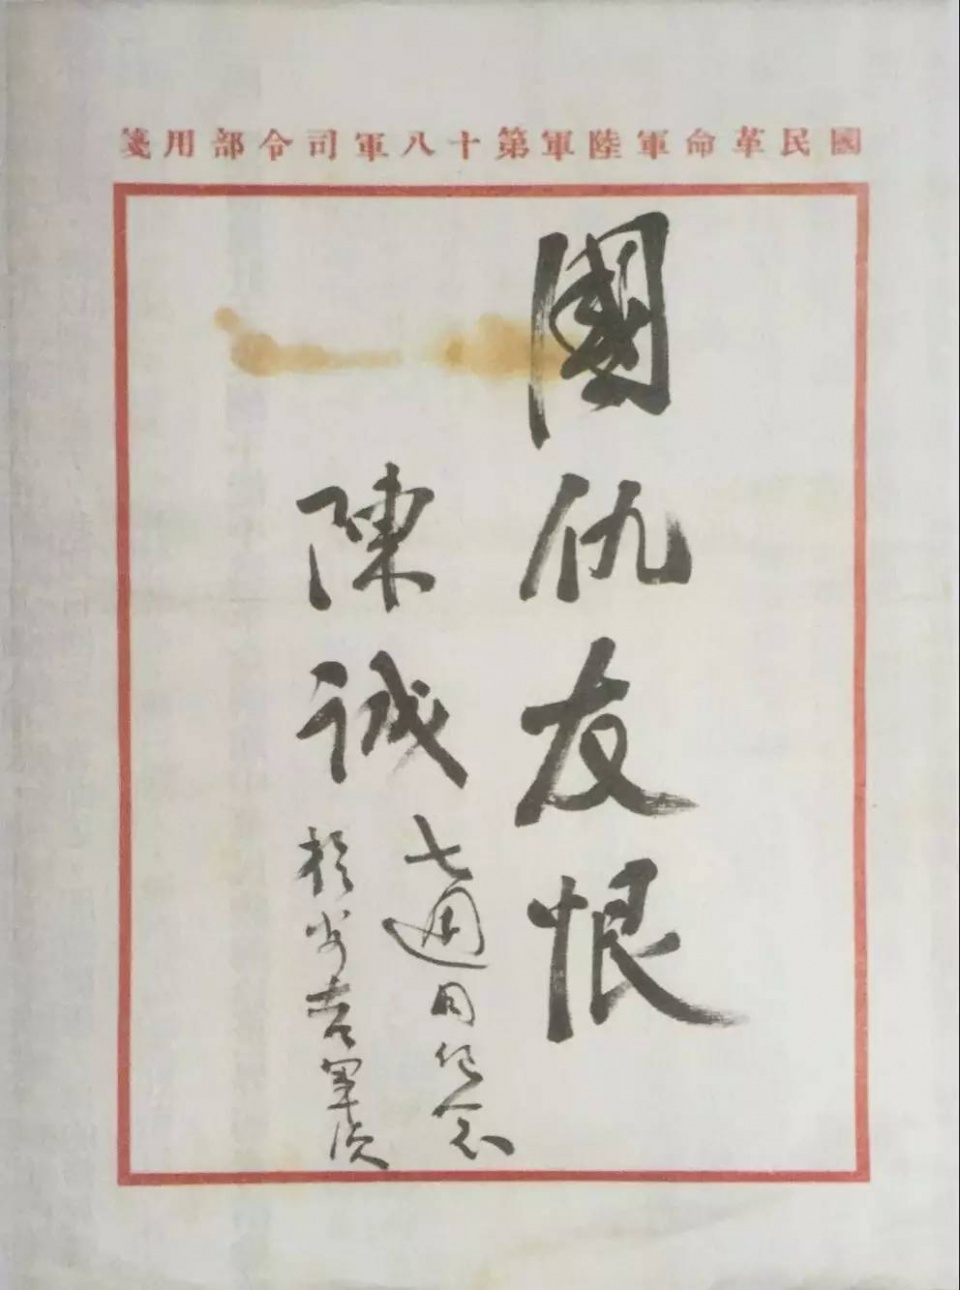 國民革命軍陸軍第十八軍司令部用箋
國仇友恨
陳誠
七週紀念
於安吉軍次